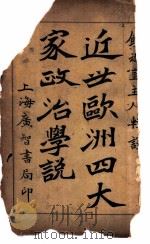 飲冰室主人輯譯
近世歐洲四大
家政治學説
上海廣智書局印